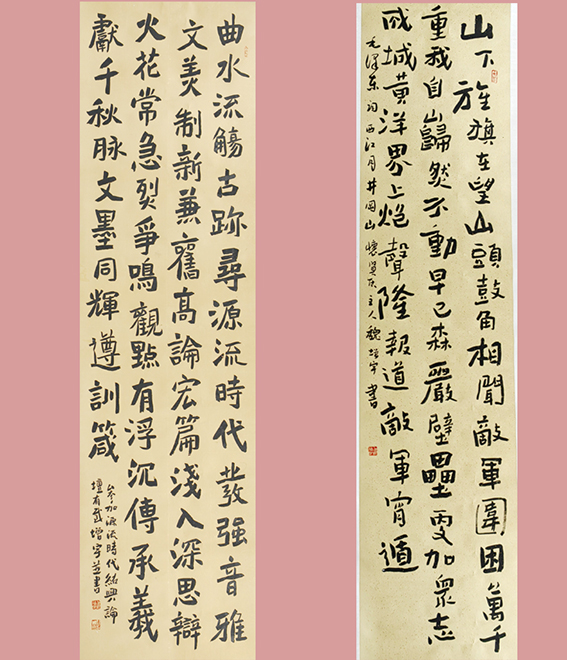 曲水流觴古跡尋源流時代發强音雅
文美制新兼舊高論宏篇淺入深思辯
火花常急烈爭鳴觀點有浮沉傳承羲
獻千秋脉文墨同輝遵訓箴
參加源流時代紹興論
壇有感增宇并書
山下旌旗在望山頭鼓角相聞敵軍圍困萬千
重我自巋然不動早已森嚴壁壘更加衆志
成城黄洋界上炮聲隆報道敵軍宵遁
毛澤東詞西江月井岡山 主人魏增宇書